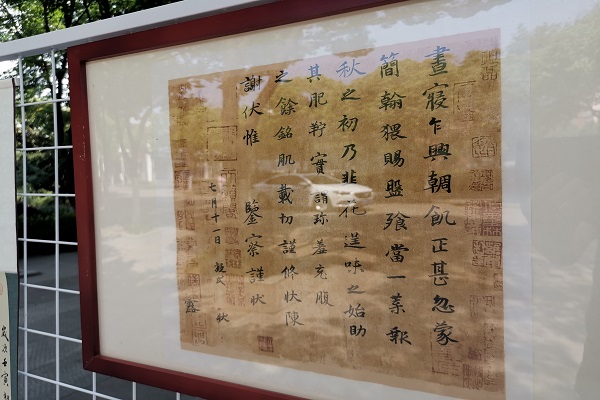 晝寢乍興輖飢正甚忽蒙
簡翰猥賜盤飧當一葉報
秋之初乃韭花逞味之始助
其肥羜實謂珍羞充腹
之餘銘肌載切謹修狀陳
謝伏惟 鑒察謹狀
七月十一日
歲次壬寅